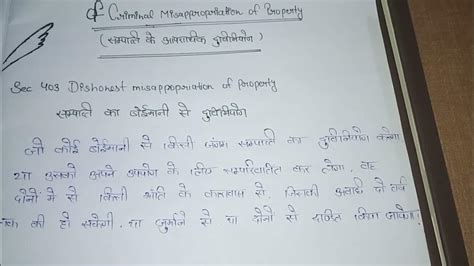 Of Criminal Misappropriation of Property
(सम्पत्ति के आपराधिक दुर्विनियोग)
Sec 403 Dishonest misappropriation of Property
सम्पत्ति का बेईमानी से दुर्विनियोग
जो कोई बेईमानी से किसी जंगम सम्पत्ति का दुर्विनियोग करेगा
या उसको अपने उपयोग के लिए सम्परिवर्तित कर लेगा, वह
दोनों में से किसी भांति के कारावास से, जिसकी अवधि दो वर्ष
तक की हो सकेगी, या जुर्माने से या दोनों से दण्डित किया जायेगा।